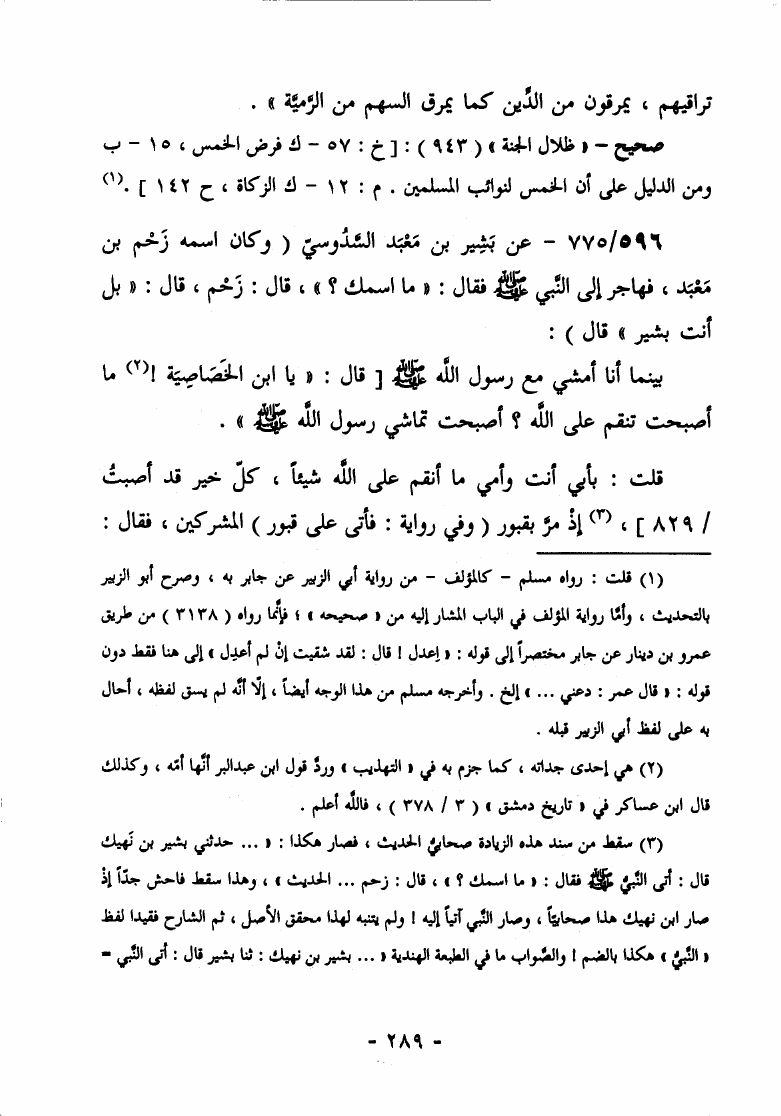 تراقيهم ، يمرقون من الدِّين كما يمرق السهم من الرَّميَّة » .
صحيح – « ظلال الجنة » ( ٩٤٣ ) : [ خ : ٥٧ – ك فرض الخمس ، ١٥ – ب
ومن الدليل على أن الخمس لنوائب المسلمين . م : ١٢ – ك الزكاة ، ح ١٤٢ ] .(١)
٧٧٥/٥٩٦ – عن بَشِير بن مَعْبَد السَّدُوسيّ ( وكان اسمه زَحْم بن
مَعْبَد ، فهاجر إلى النَّبي ﷺ فقال : « ما اسمك ؟ » ، قال : زَحْم ، قال : « بل
أنت بشير » قال ) :
بينما أنا أمشي مع رسول اللَّه ﷺ [ قال : « يا ابن الخَصَاصِيَة !(٢) ما
أصبحت تنقم على اللَّه ؟ أصبحت تماشي رسول اللَّه ﷺ » .
قلت : بأبي أنت وأمي ما أنقم على اللَّه شيئاً ، كلّ خير قد أصبتُ
/ ٨٢٩ ] ، (٣) إذْ مرَّ بقبور ( وفي رواية : فأتى على قبور ) المشركين ، فقال :
(١) قلت : رواه مسلم – كالمؤلف – من رواية أبي الزبير عن جابر به ، وصرح أبو الزبير
بالتحديث ، وأمَّا رواية المؤلف في الباب المشار إليه من « صحيحه » ؛ فإنَّما رواه ( ٣١٣٨ ) من طريق
عمرو بن دينار عن جابر مختصراً إلى قوله : « اِعدل ! قال : لقد شقيت إنْ لم أعدِل » إلى هنا فقط دون
قوله : « قال عمر : دعني ... » إلخ . وأخرجه مسلم من هذا الوجه أيضاً ، إلّا أنَّه لم يسق لفظه ، أحال
به على لفظ أبي الزبير قبله .
(٢) هي إحدى جداته ، كما جزم به في « التهذيب » وردَّ قول ابن عبدالبر أنَّها أمّه ، وكذلك
قال ابن عساكر في « تاريخ دمشق » ( ٣ / ٣٧٨ ) ، فاللَّه أعلم .
(٣) سقط من سند هذه الزيادة صحابيُّ الحديث ، فصار هكذا : « ... حدثني بشير بن نَهيك
قال : أتى النَّبيُّ ﷺ فقال : « ما اسمك ؟ » ، قال : زحم ... الحديث » ، وهذا سقط فاحش جدّاً إذْ
صار ابن نهيك هذا صحابيّاً ، وصار النَّبي آتياً إليه ! ولم يتنبه لهذا محقق الأصل ، ثم الشارح فقيدا لفظ
« النَّبيُّ » هكذا بالضم ! والصَّواب ما في الطبعة الهندية « ... بشير بن نهيك : ثنا بشير قال : أتى النَّبي =
- ٢٨٩ -